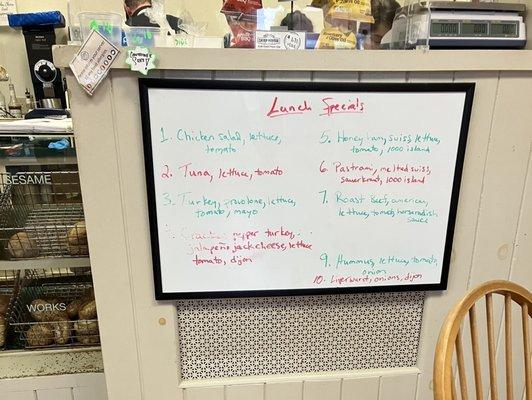 Lunch Specials
1. Chicken salad, lettuce,
tomato
2. Tuna, lettuce, tomato
3. Turkey, provolone, lettuce,
tomato, mayo
pepper turkey,
jalapeño jack cheese, lettuce
tomato, dijon
5. Honey ham, suiss, lettuce,
tomato, 1000 island
6. Pastrami, melted suiss,
sauerkraut, 1000 island
7. Roast Beef, american,
lettuce, tomato, horseradish
sauce
9. Hummus, lettuce, tomato,
onion
10. Liverwurst, onions, dijon
SESAME
WORKS